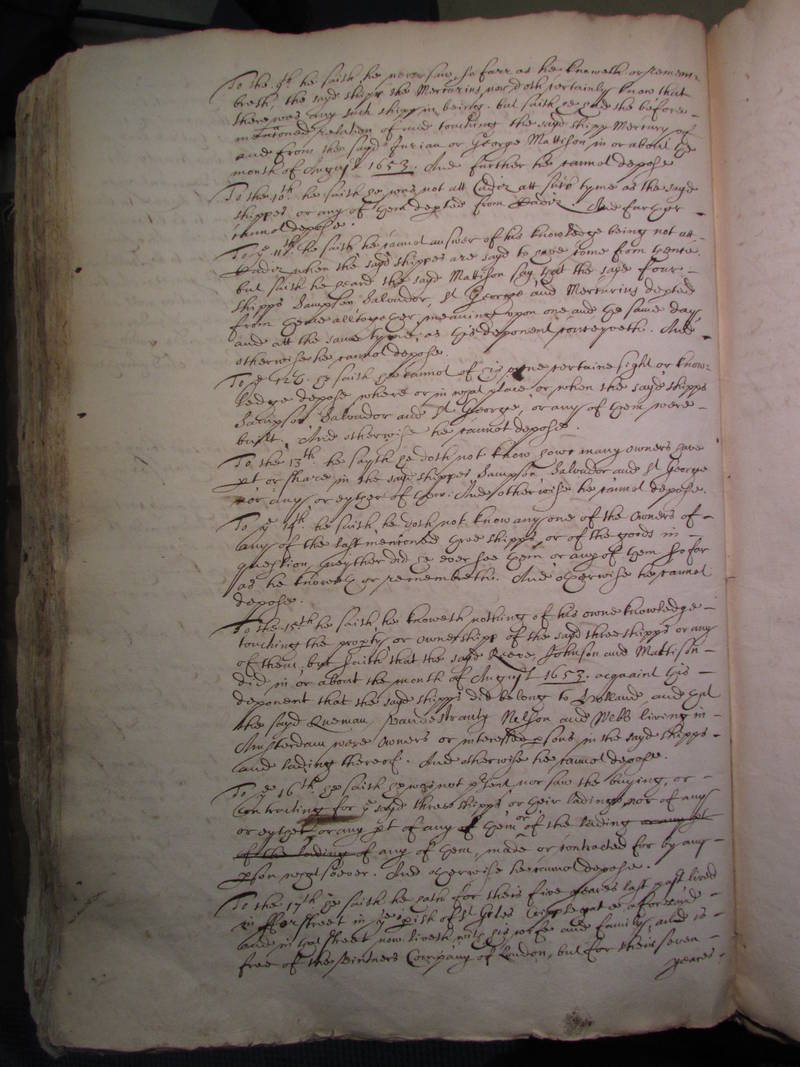 To the 9th he saith he never saw, so farr as he knoweth or remem-
breth, the sayd shipp the Mercurius, nor doth certainly know that
there was any such shipp in being. but saith hee had the before-
mentioned relation of and touching the sayd shipp Mercury of
and from the sayd Jurian or George Mattison in or about the
month of August 1653. And further he cannot depose
To the 10th he saith hee was not att Cadiz att such tyme as the sayd
shipps or any of them depted from Cadiz. And further
cannot depose.
To ye 11th he saith he cannot answer of his knowledge being not att
Cadiz when the sayd shippes are sayd to have come from thence
but saith he heard the sayd Mattison say that the sayd four
shipps Sampson Salvador, St George and Mercurius depted
from thence alltogether, meaning upon one and the same day
and att the same tyme, as this deponent conceyveth. And
otherwise he cannot depose.
To ye 12th hee saith hee cannot of his owne certaine sight or know-
ledge depose where or in what place or when the sayd shipps
Sampson Salvador and St George, or any of them were
built. And otherwise he cannot depose.
To the 13th he sayth he doth not know how many owners have
pt or share in the sayd shippes Sampson, Salvador and St George
nor any or eyther of them. And otherwise he cannot depose.
To ye 14th he saith he doth not know any one of the Owners of
any of the last mentioned three shipps, or of the goods in
question, neyther did he ever see them or any of them so far
as he knoweth or remembreth. And otherwise he cannot
depose.
To the 15th he saith, he knoweth nothing of his owne knowledge
touching the proprty or ownershipp of the sayd three shipps or any
of them, but saith that the sayd Johnson and Mattison
did in or about the month of August 1653. acquaint this
deponent that the sayd shipps did belong to Holland, and that
the sayd Nelson and Webb living in
Amsterdam were Owners or interessed psons in the sayd shipps
and lading thereof. And otherwise he cannot depose.
To ye 16th hee saith hee was not psent nor saw the buying, or
contracting for ye sayd three shipps or their lading, nor of any
or eyther or any pt of any of them or of the lading or any pt
of the lading of any of them, made or contracted for by any
pson whatsoever. And otherwise he cannot depose.
To the 17th hee saith he hath for theis five yeares last past lived
in street in ye pish of St Giles Cripplegate aforesaid
and in that street now liveth with his wife and family, and is
free of the Company of London, but for theis seven
yeares